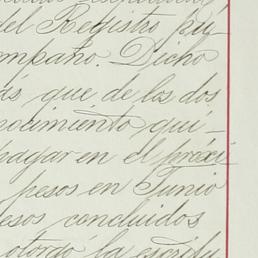 del Registro pú-
ompaño. Dicho
ás que de los dos
nocimiento qui-
pagar en el próxi
pesos en Junio
esos concluidos
otorgó la escritu